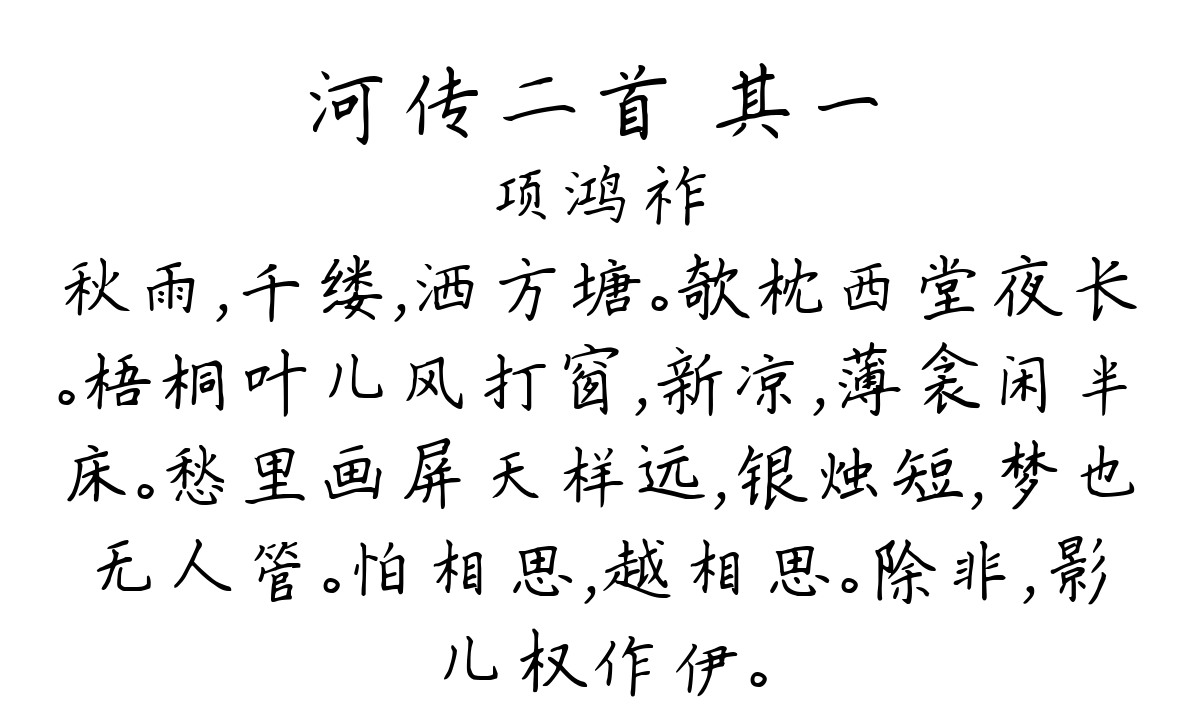 河传二首 其一
项鸿祚
秋雨,千缕,洒方塘。欹枕西堂夜长
。梧桐叶儿风打窗,新凉,薄衾闲半
床。愁里画屏天样远,银烛短,梦也
无人管。怕相思,越相思。除非,影
儿权作伊。